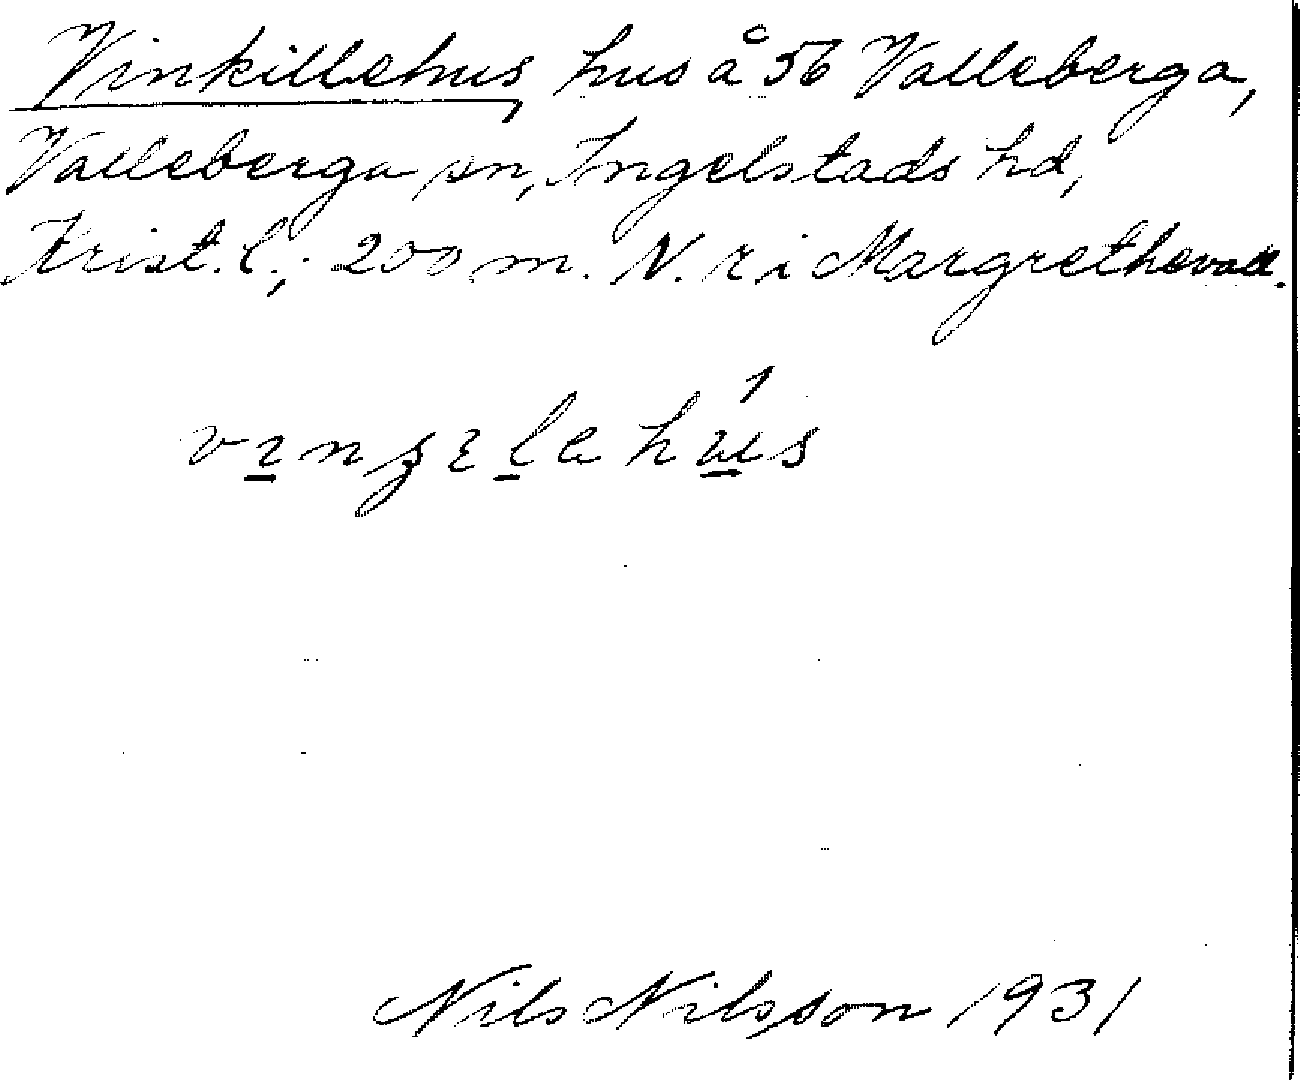 Vinkillehus, hus å 56 Valleberga,
Valleberga sn, Ingelstads hd,
Krist. l.; 200 m. N. r. i Margrethevall.
Nils Nilsson 1931